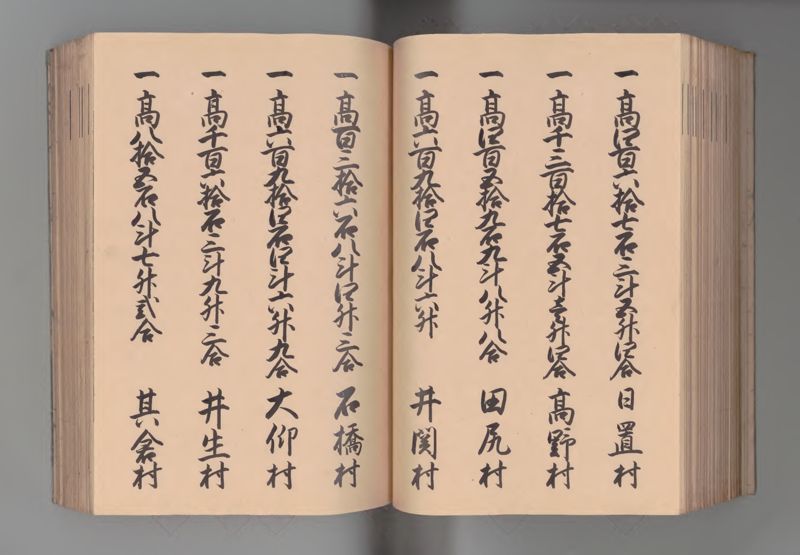 一 高四百六拾七石三斗五升四合 日置村
一 高千三百拾七石五斗壱升四合 高野村
一 高四百五拾九石九斗八升八合 田尻村
一 高六百九拾四石八斗六升 井関村
一 高百三拾六石八斗四升三合 石橋村
一 高六百九拾四石四斗六升九合 大仰村
一 高千百六拾石三斗九升三合 井生村
一 高八拾五石八斗七升弐合 其倉村